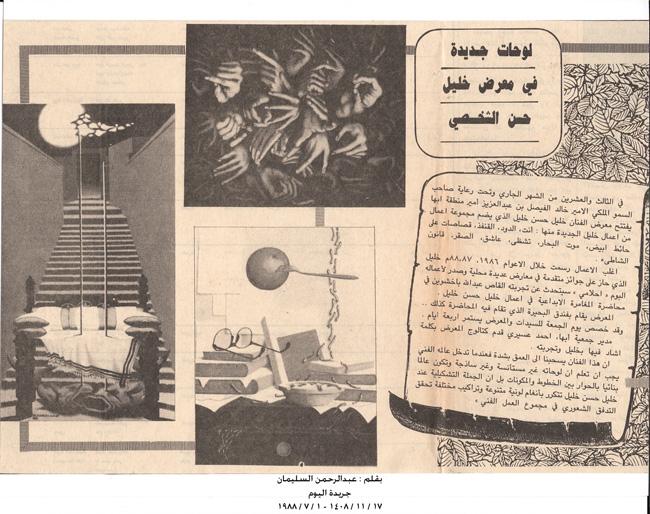 لوحات جديدة
في معرض خليل
حسن الشخصي
في الثالث والعشرين من الشهر الجاري وتحت رعاية صاحب
السمو الملكي الامير خالد الفيصل بن عبدالعزيز امير منطقة ابها
يفتتح معرض الفنان خليل حسن خليل الذي يضم مجموعة اعمال
من اعمال خليل الجديدة منها : انت، الدور، القنفذ، قصاصات على
حائط ابيض، موت البحار، تشظى، عاشق، الصقر، قانون
الشاطئ»
اغلب الاعمال رسمت خلال الاعوام ١٩٨٦، ٨٨،٨٧م خليل
الذي حاز على جوائز متقدمة في معارض عديدة محلية وصدر لاعماله
اليوم « احلامي » سيتحدث عن تجربته القاص عبدالله باخشوين في
محاضرة المغامرة الابداعية في اعمال خليل حسن خليل .
المعرض يقام بفندق البحيرة الذي تقام فيه المحاضرة كذلك ..
وقد خصص يوم الجمعة للسيدات والمعرض يستمر اربعة ايام .
مدير جمعية ابها، احمد عسيري قدم كتالوج المعرض بكلمة
اشاد فيها بخليل وتجربته .
ان هذا الفنان يسحبنا الى العمق بشدة فعندما تدخل عالمه الفني
يجب ان تعلم ان لوحاته غير مستأنسة وغير ساذجة وتكون عالما
بنائيا بالحوار بين الخطوط والمكونات بل ان الجملة التشكيلية عند
خليل حسن خليل تتكرر بانغام لونية متنوعة وتراكيب مختلفة تحقق
التدفق الشعوري في مجموع العمل الفني »
بقلم : عبدالرحمن السليمان
جريدة اليوم
١٧ / ١١ / ١٤٠٨ - ١ / ٧ / ١٩٨٨